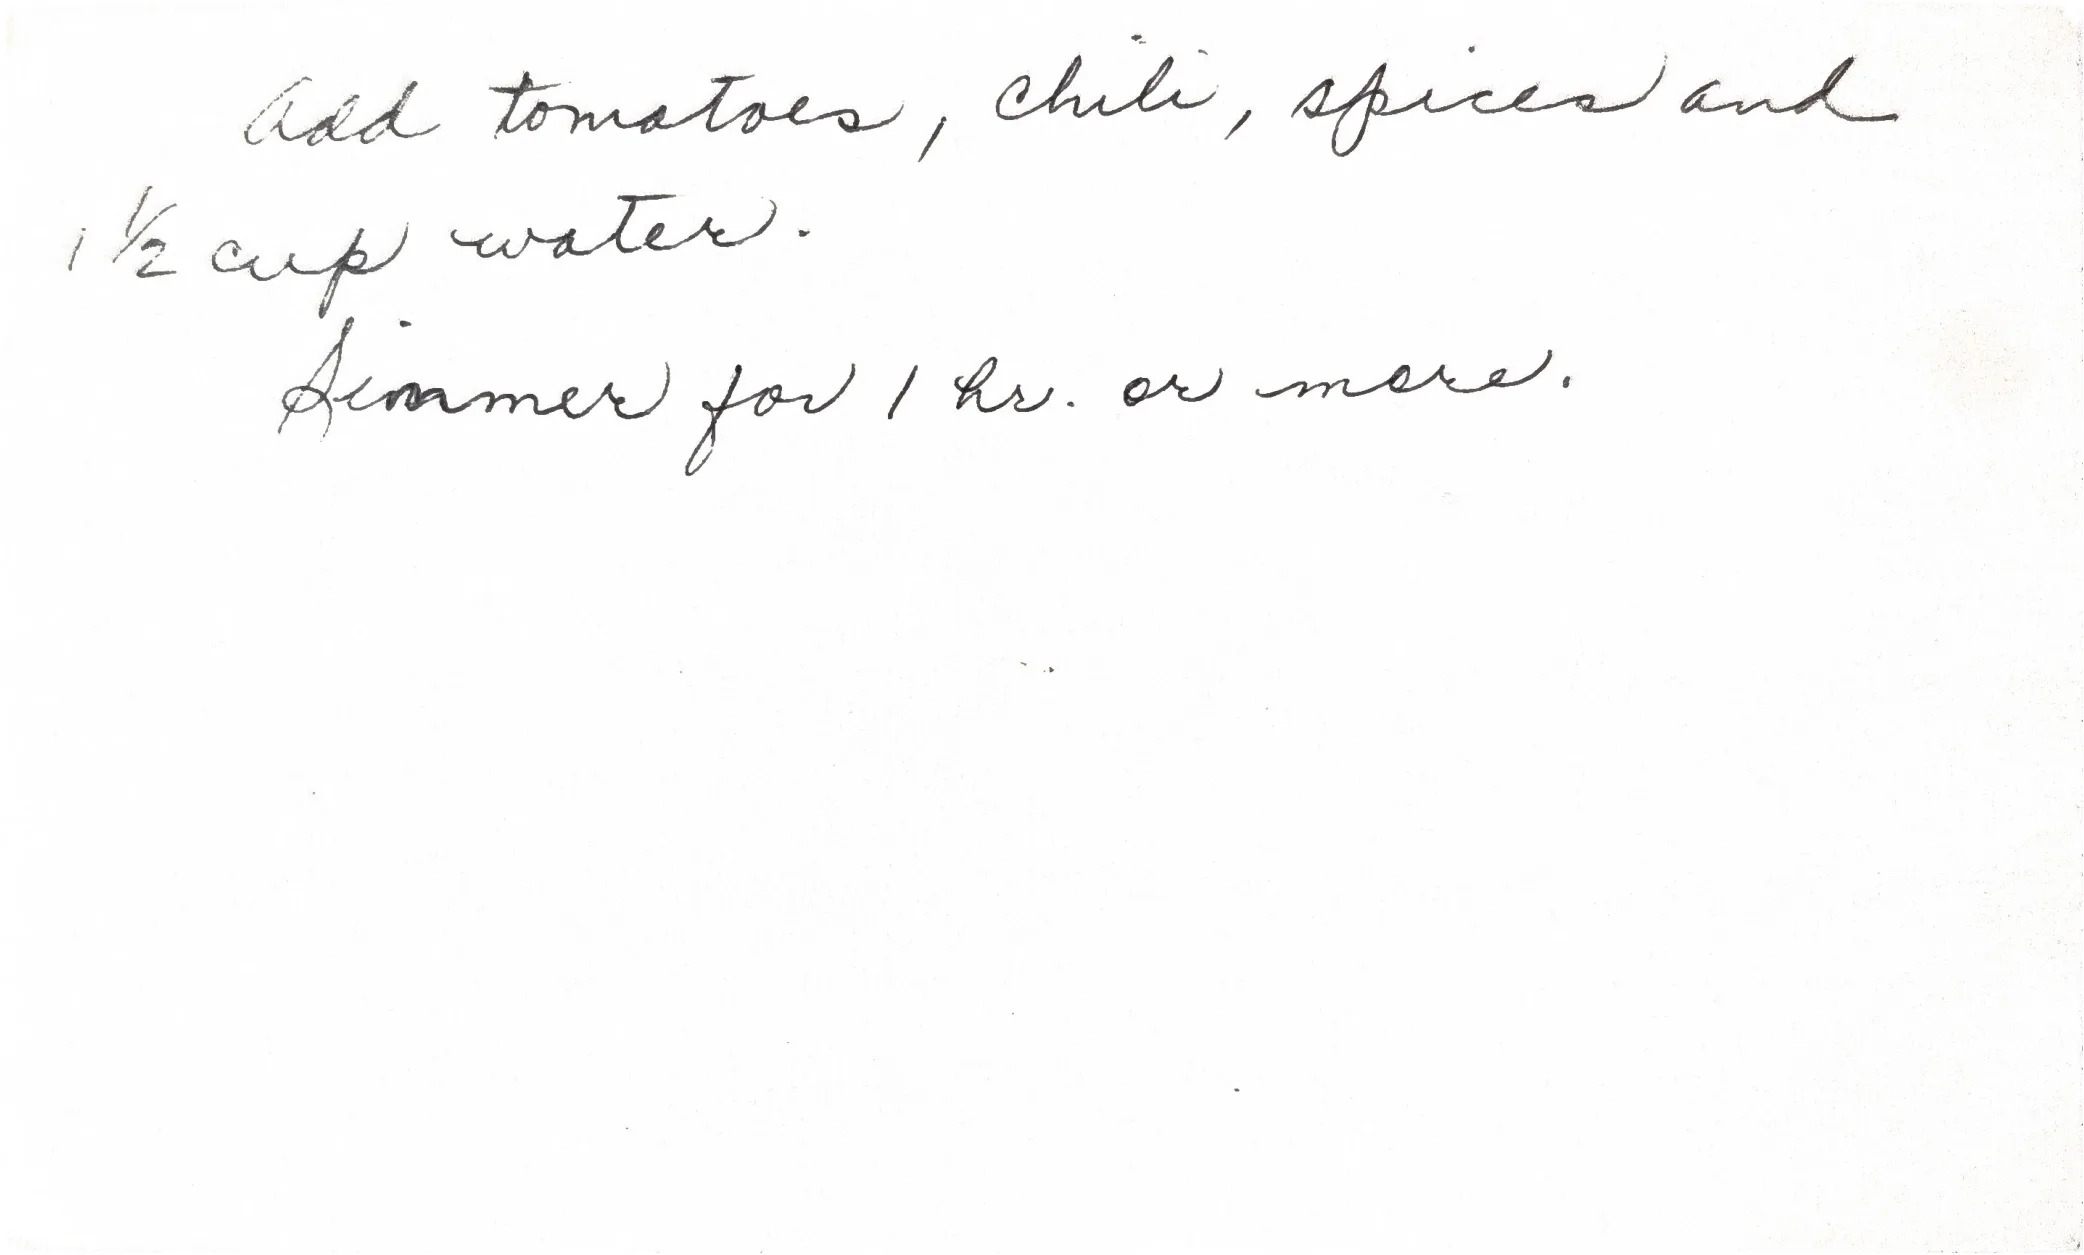 Add tomatoes, chili, spices and
1 1/2 cup water.
Simmer for 1 hr. or more.